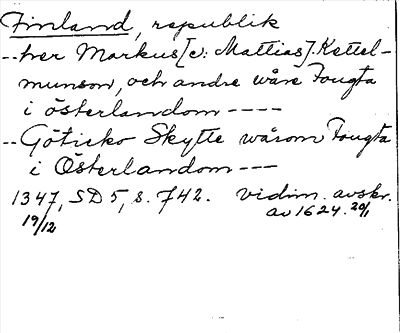 Finland, republik
--her Markus [c: Mattias]. Kettel-
munson, och andre wåre Fougta
i österlandom ----
-- Göticko Skytte wårom Fougta
i Österlandom ---
1347, SD 5, s. 742. vidim. avskr.
19/12 av 1624. 20/1